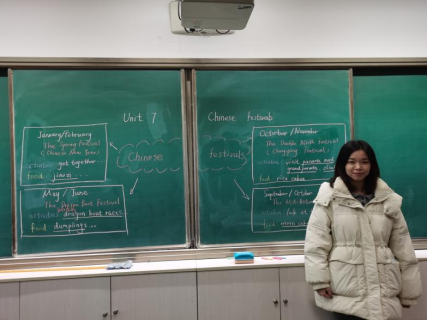 Unit 7 Chinese Festivals
January/February
The Spring Festival
(Chinese New Year)
activities get together
food: jiaozi ...
Chinese festivals
May / June
The Dragon Boat Festival
activities dragon boat races
food dumplings...
October / November
The Double Ninth Festival
(Chongyang Festival)
activities visit parents and
grand parents,
food rice cakes
September / October
The Mid-Autumn
activities look at
food moon cakes